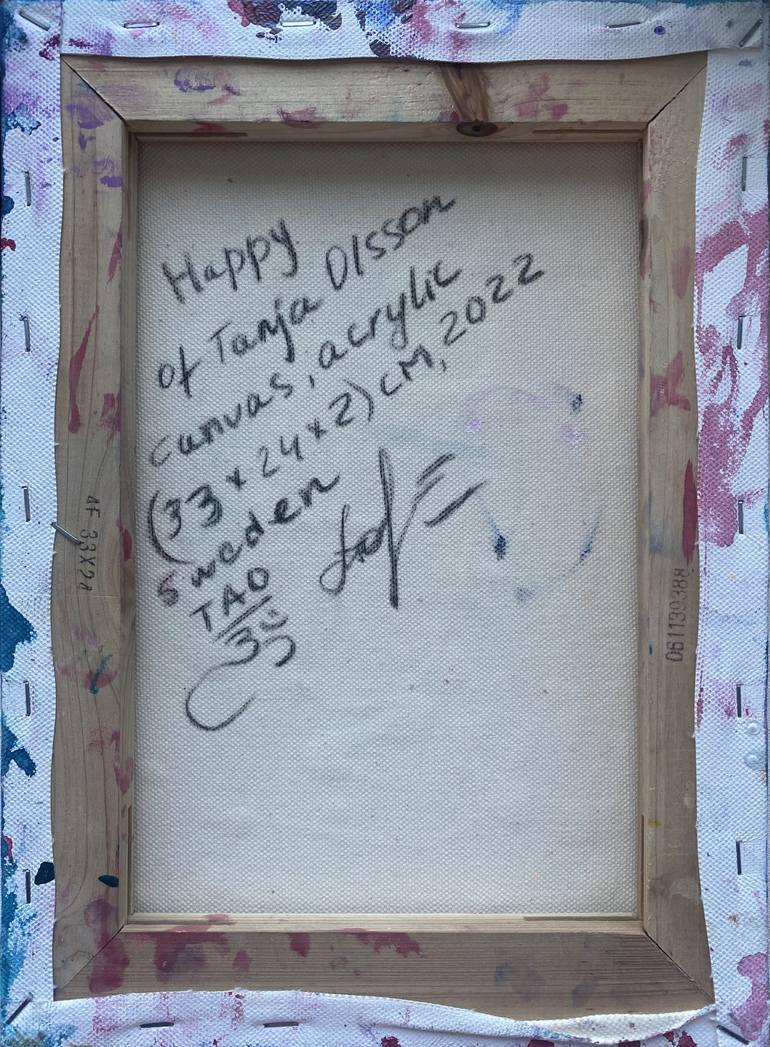 Happy
of Tanja Olsson
canvas, acrylic
(33 x 24 x 2) cM, 2022
Sweden
TAO
AF 33X24
061139388